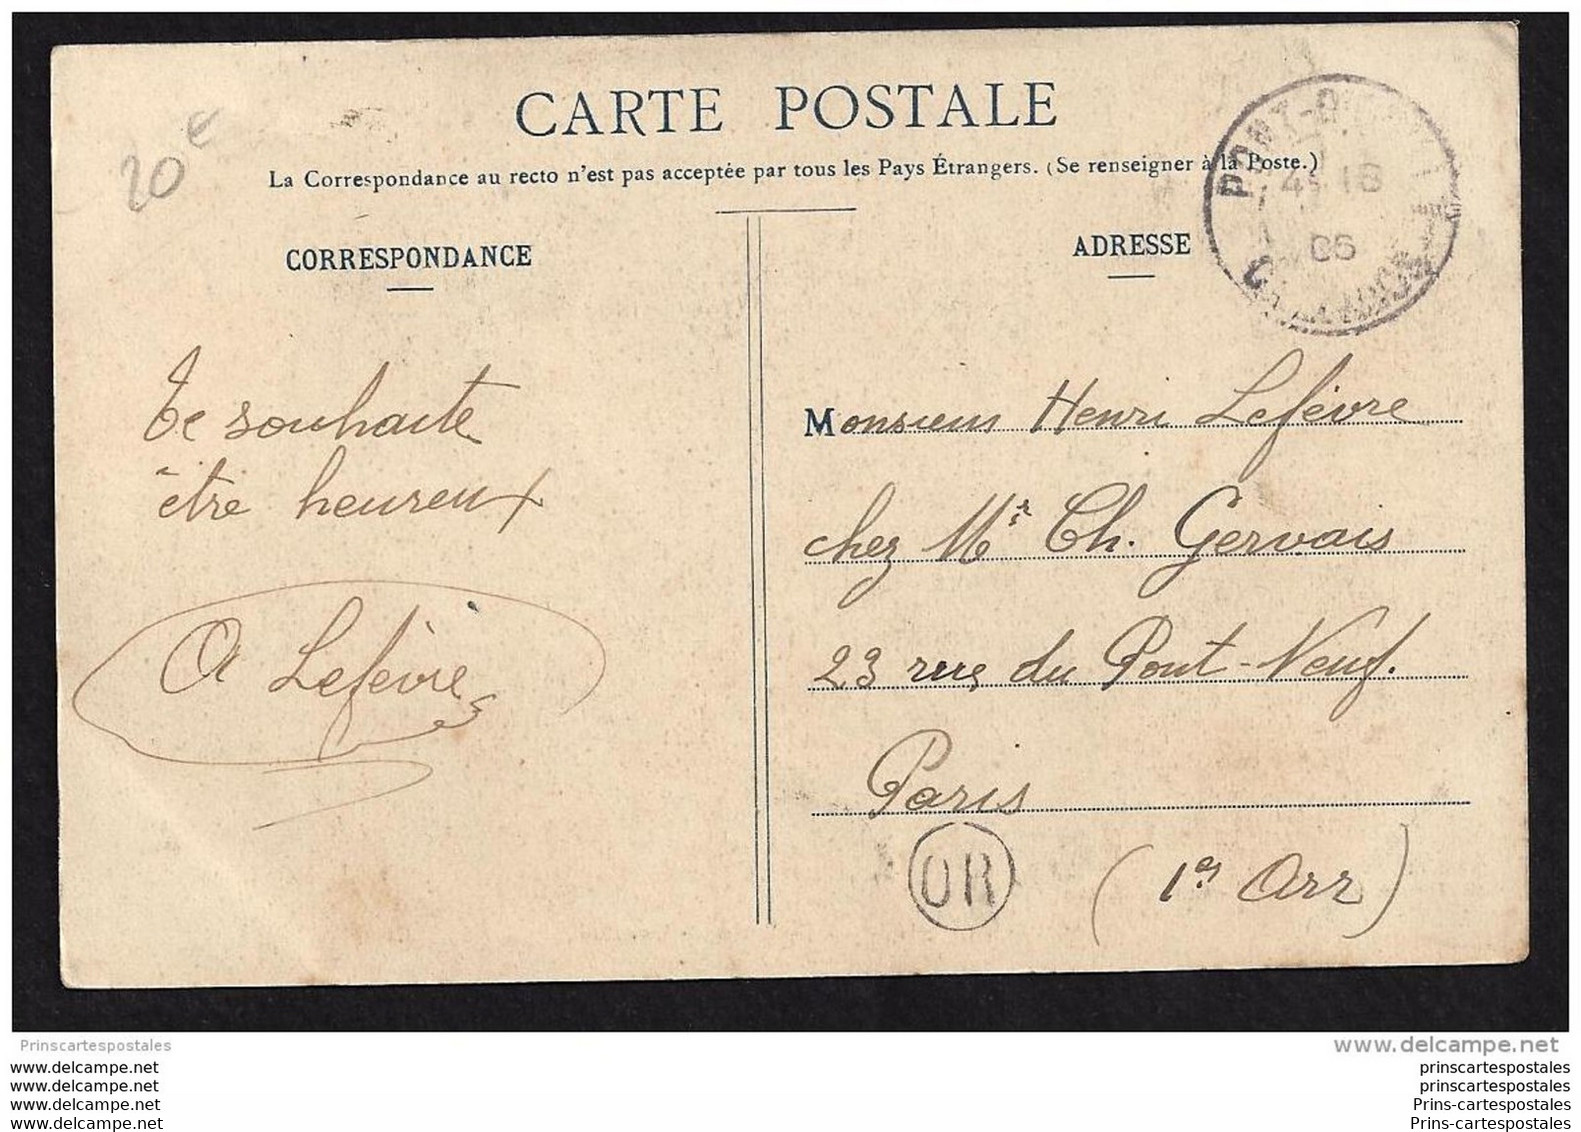 CARTE POSTALE
La Correspondance au recto n'est pas acceptée par tous les Pays Étrangers. (Se renseigner à la Poste.)
20 €
CORRESPONDANCE
Te souhaite
être heureux
A Lefèvre
ADRESSE
PONT-
06
Monsieur Henri Lefèvre
chez Mr Ch. Gervais
23 rue du Pont-Neuf.
Paris
(1er Arr)
OR
Prinscartespostales
www.delcampe.net
www.delcampe.net
www.delcampe.net
www.delcampe.net
www.delcampe.net
prinscartespostales
prinscartespostales
Prins-cartespostales
Prins-cartespostales